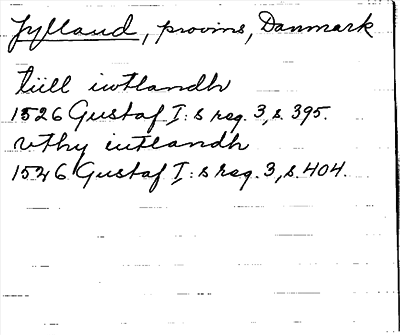 Jylland, provins, Danmark
tüll iwtlandh
1526 Gustaf I:s reg. 3, s. 395.
vthy iutlandh
1526 Gustaf I:s reg. 3, s. 404.